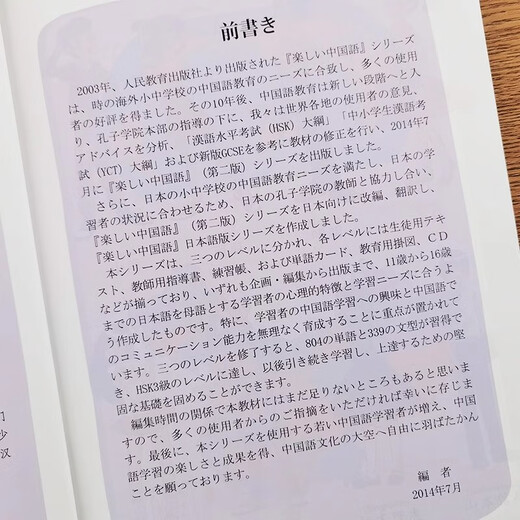 前書き
2003年、人民教育出版社より出版された『楽しい中国語』シリーズ
は、時の海外小中学校の中国語教育のニーズに合致し、多くの使用
者の好評を得ました。その10年後、中国語教育は新しい段階へと入
り、孔子学院本部の指導の下に、我々は世界各地の使用者の意見、
アドバイスを分析、「漢語水平考試（HSK）大綱」「中小学生漢語考
試（YCT）大綱」および新版GCSEを参考に教材の修正を行い、2014年7
月に『楽しい中国語』（第二版）シリーズを出版しました。
さらに、日本の小中学校の中国語教育ニーズを満たし、日本の学
習者の状況に合わせるため、日本の孔子学院の教師と協力し合い、
『楽しい中国語』（第二版）シリーズを日本向けに改編、翻訳し、
『楽しい中国語』日本語版シリーズを作成しました。
本シリーズは、三つのレベルに分かれ、各レベルには生徒用テキ
スト、教師用指導書、練習帳、および単語カード、教育用掛図、ＣＤ
などが揃っており、いずれも企画・編集から出版まで、11歳から16歳
までの日本語を母語とする学習者の心理的特徴と学習ニーズに合うよ
う作成したものです。特に、学習者の中国語学習への興味と中国語で
のコミュニケーション能力を無理なく育成することに重点が置かれて
います。三つのレベルを修了すると、804の単語と339の文型が習得で
き、HSK3級のレベルに達し、以後引き続き学習し、上達するための堅
固な基礎を固めることができます。
編集時間の関係で本教材にはまだ足りないところもあると思いま
すので、多くの使用者からのご指摘をいただければ幸いに存じま
す。最後に、本シリーズを使用する若い中国語学習者が増え、中国
語学習の楽しさと成果を得、中国語文化の大空へ自由に羽ばたかん
ことを願っております。
編 者
2014年7月
门
少
汉